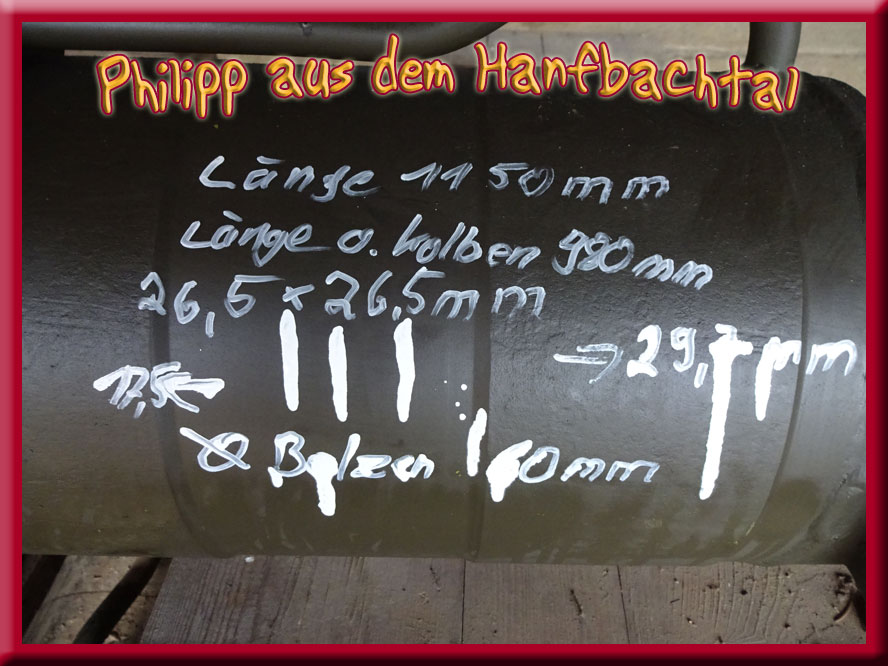 Philipp aus dem Hanfbachtal
Länge 1150mm
Länge o. Kolben 980mm
26,5 x 26,5mm
→ 29,7mm
17,5 ←
Ø Bolzen 60mm